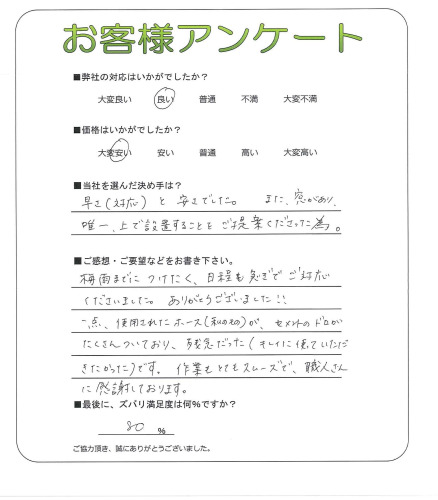 お客様アンケート
■弊社の対応はいかがでしたか？
大変良い 良い 普通 不満 大変不満
■価格はいかがでしたか？
大変安い 安い 普通 高い 大変高い
■当社を選んだ決め手は？
早さ(対応)と安さでした。 また、窓があり、
唯一、上で設置することをご提案くださった為。
■ご感想・ご要望などをお書き下さい。
梅雨までにつけたく、日程も急ぎでご対応
くださいました。 ありがとうございました!!
一点、使用されたホース(私のもの)が、セメントのドロが
たくさんついており、残念だった(キレイに使っていただ
きたかった)です。 作業もとてもスムーズで、職人さん
に感謝しております。
■最後に、ズバリ満足度は何%ですか？
80 %
ご協力頂き、誠にありがとうございました。